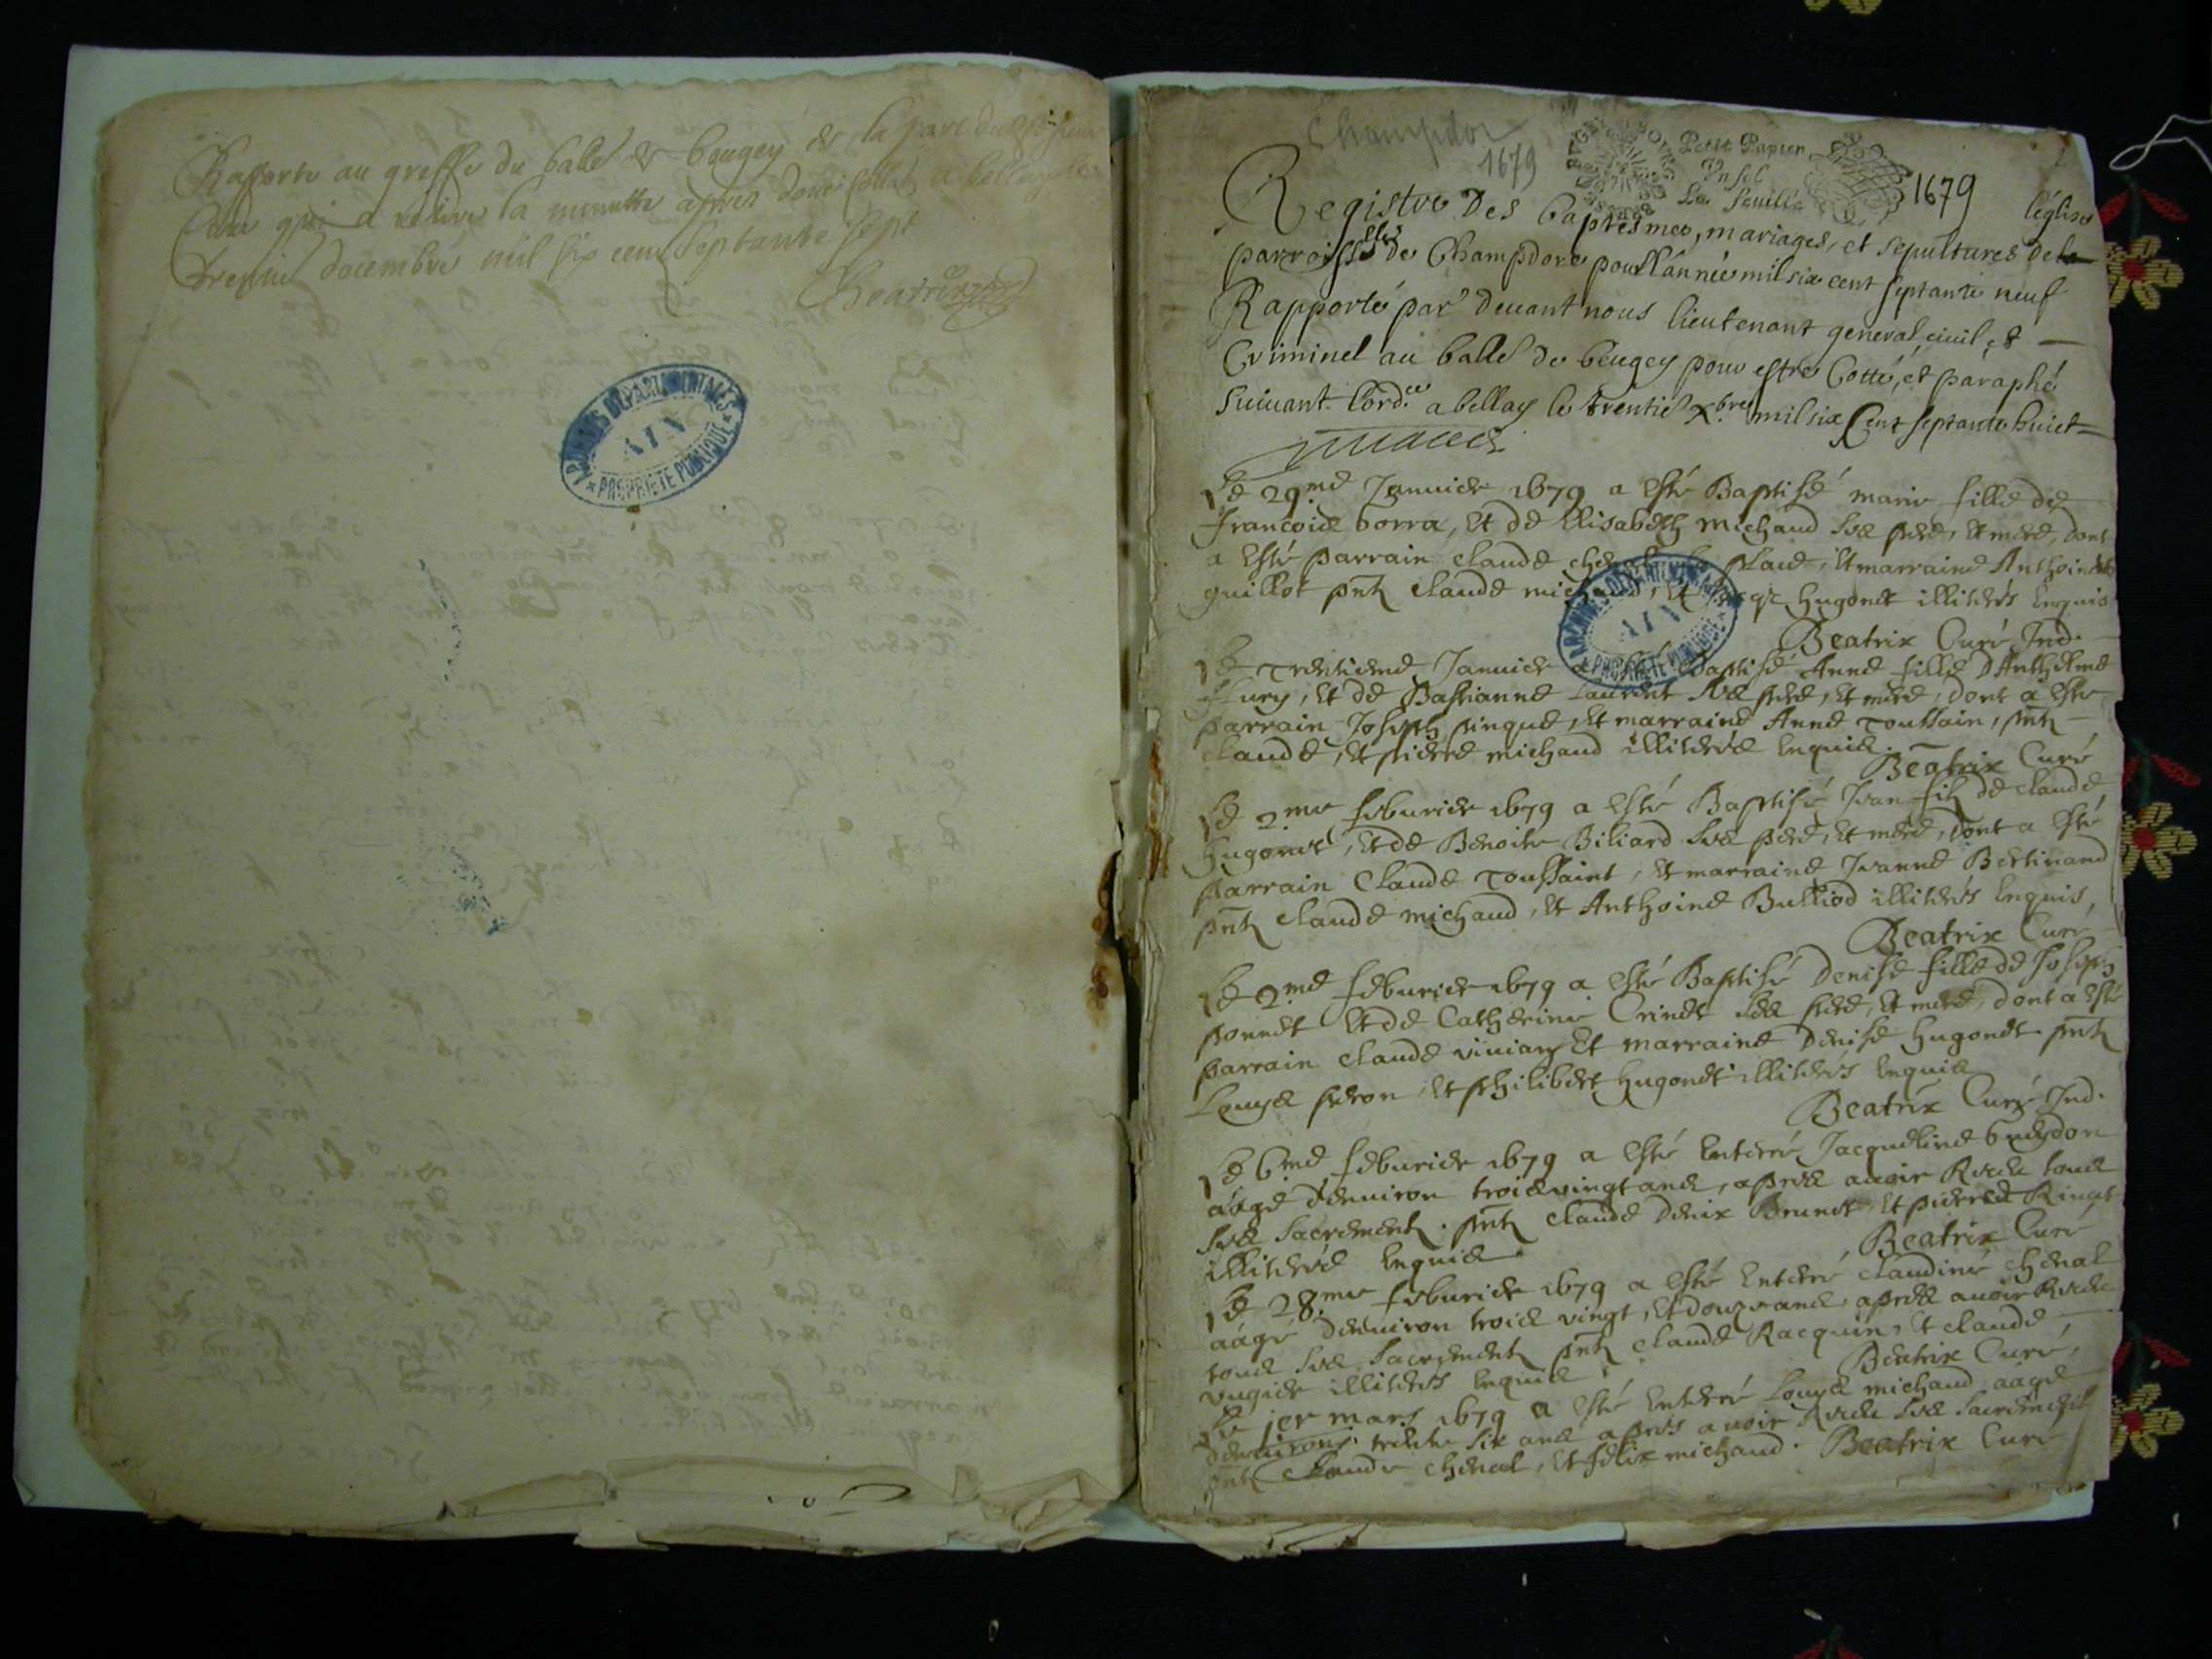 Rapporté au greffe du balle de beugey de la part dudit sieur
Curé qui a retiré la minutte apres a belley le
trente decembre mil six cent septante sept
ARCHIVES DEPARTEMENTALES
AIN
PROPRIETE PUBLIQUE
Champdor
1679
Petit Papier
Un sol
La feuille
1679
Registre Des baptesmes, mariages, et sepultures de l'église
parroissielle de Champdore pour l'année mil six cent septante neuf
Rapporté par deuant nous lieutenant general ciuil et
Criminel au balle de beugey pour estre Cotté, et paraphé
suiuant l'ord.ce a bellay le trentie Xbre mil six Cent septante huict
Le 29me Januier 1679 a esté Baptisé marie fille de
francois borra, et de Elisabeth michaud ses pere, et mere, dont
a esté parrain claude plane, et marraine Anthoinette
guillot pnts claude michaud, et hugonet illiterés enquis
Beatrix Curé Ind.
Le trentieme Januier a esté Baptisé Anne fille D'Anthelme
flury, et de Bastianne Laurent ses pere, et mere, dont a esté
parrain Joseph pingue, et marraine Anne toussain, pnts
claude, et pierre michaud illiterés enquis.
Beatrix Curé
ARCHIVES DEPARTEMENTALES
AIN
PROPRIETE PUBLIQUE
Le 2me feburier 1679 a esté Baptisé Jean fils de claude
hugonet, et de Benoite Biliard ses pere, et mere, dont a esté
parrain Claude toussaint, et marraine Jeanne Bertinand
pnts claude michaud, et Anthoine Bulliod illiterés enquis,
Beatrix Curé
Le 2me feburier 1679 a esté Baptisé Denise fille de Joseph
ponnet et de Catherine Crinet ses pere, et mere, dont a esté
parrain claude viuian et marraine Denise hugonet. pnts
Louys peron, et philibert hugonet illiterés enquis
Beatrix Curé Ind.
Le 6me feburier 1679 a esté Enterré Jacqueline
áàgé d'enuiron trois vingt ans, apres auoir Receu tous
ses sacrements. pnts claude denix Brunet, et pierre Rinat
illiterés enquis
Beatrix Curé
Le 28me feburier 1679 a esté Enterré claudine cheual
aàgé d'enuiron trois vingt, et douze ans, apres auoir Receu
tous ses sacrements pnts claude Racquin, et claude
vugier illiterés enquis.
Beatrix Curé,
Le jer mars 1679 a esté Enterré Louys michaud aàgé
d'enuirons trente six ans apres auoir Receu ses sacrements
pnts claude cheual, et felix michaud. Beatrix Curé